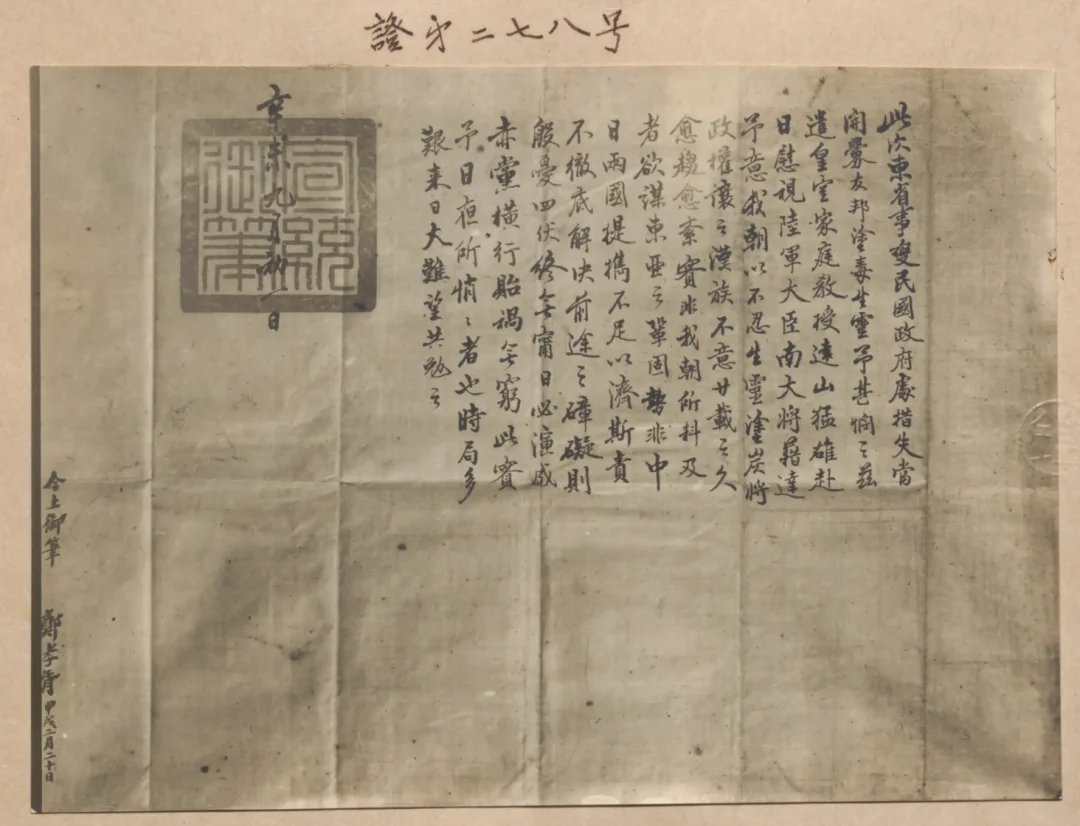 證第二七八号
此次東省事變民國政府處措失當
開釁友邦塗毒生靈予甚憫之茲
遣皇室家庭教授遠山猛雄赴
日慰視陸軍大臣南大將藉達
予意我朝以不忍生靈塗炭將
政權讓之漢族不意廿載之久
愈趨愈紊實非我朝所料及
者欲謀東亜之鞏固勢非中
日兩國提攜不足以濟斯責
不徹底解決前途之障礙則
殷憂四伏終無甯日必演成
赤黨橫行貽禍無窮此實
予日夜所悄々者也時局多
艱来日大難望共勉之
辛未九月初一日
宣統
御筆
今上御筆
鄭孝胥 甲戌二月二十日